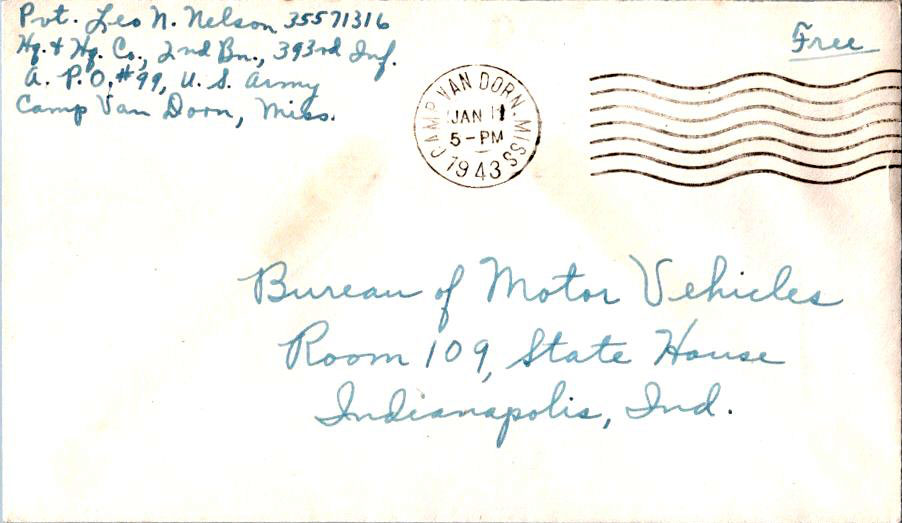 Pvt. Leo N. Nelson 35571316
Hq. & Hq. Co., 2nd Bn., 393rd Inf.
A. P. O. #99, U. S. Army
Camp Van Dorn, Miss.
Free
CAMP VAN DORN. MISS
JAN 11
5-PM
1943
Bureau of Motor Vehicles
Room 109, State House
Indianapolis, Ind.